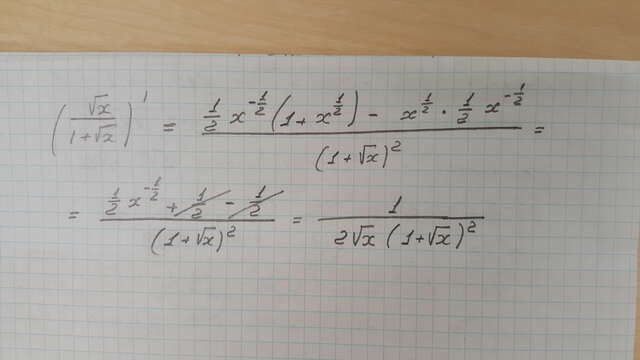 (√x / (1+√x))' = (1/2 x^(-1/2) (1 + x^(1/2)) - x^(1/2) · 1/2 x^(-1/2)) / (1+√x)^2 =
= (1/2 x^(-1/2) + 1/2 - 1/2) / (1+√x)^2 = 1 / (2√x (1+√x)^2)